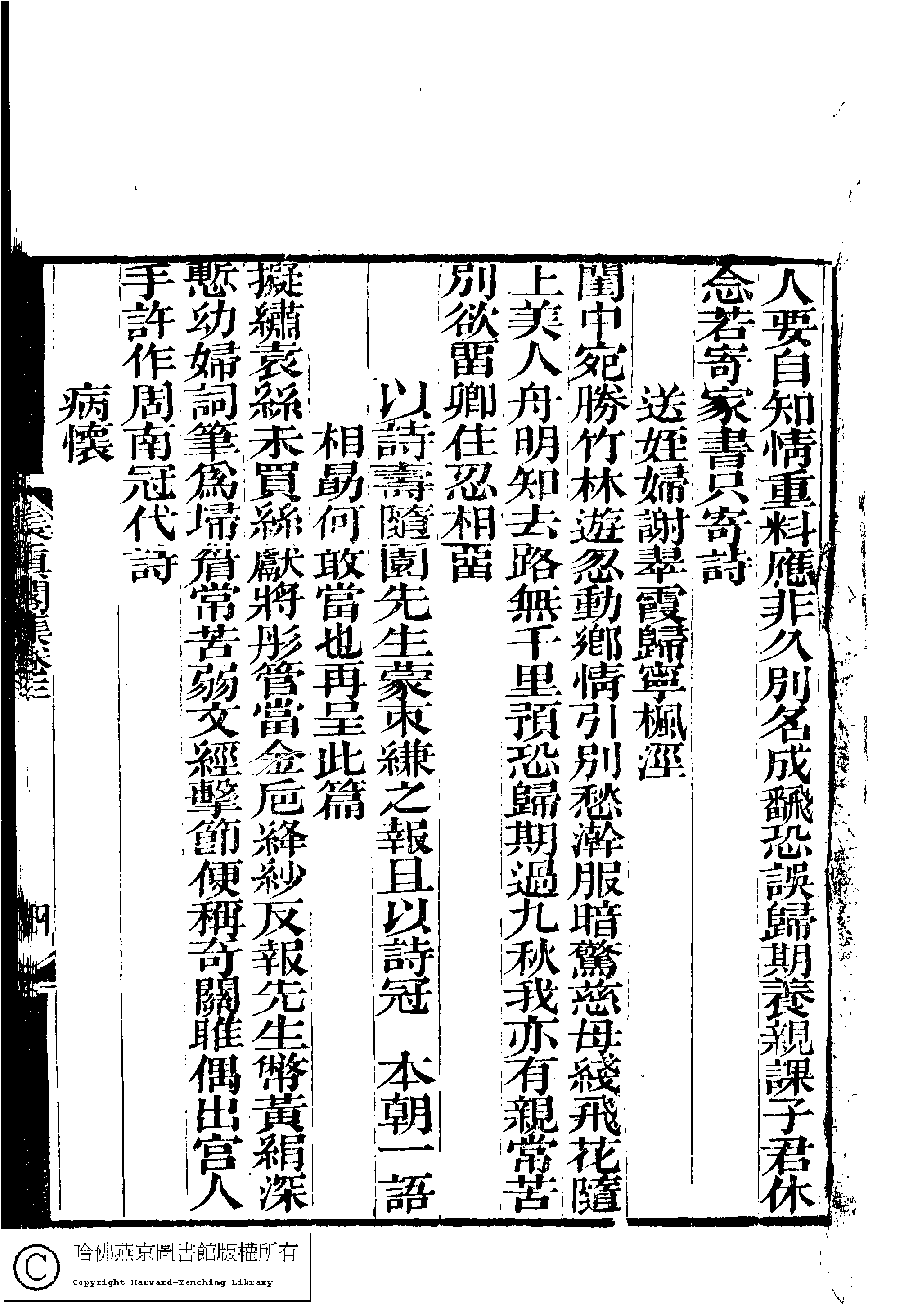 人要自知情重料應非久別名成飜恐誤歸期養親課子君休
念若寄家書只寄詩
送姪婦謝翠霞歸寧楓涇
閨中宛勝竹林遊忽動鄉情引別愁澣服暗驚慈母綫飛花隨
上美人舟明知去路無千里預恐歸期過九秋我亦有親常苦
別欲畱卿住忍相畱
以詩壽隨園先生蒙束縑之報且以詩冠 本朝一語
相勗何敢當也再呈此篇
擬繡袁絲未買絲獻將彤管當金卮絳紗反報先生幣黃絹深
慙幼婦詞筆爲埽眉常苦弱文經擊節便稱奇關雎偶出宮人
手許作周南冠代詩
病懷
集卷三
四
哈佛燕京圖書館版權所有
Copyright Harvard-Yenching Library